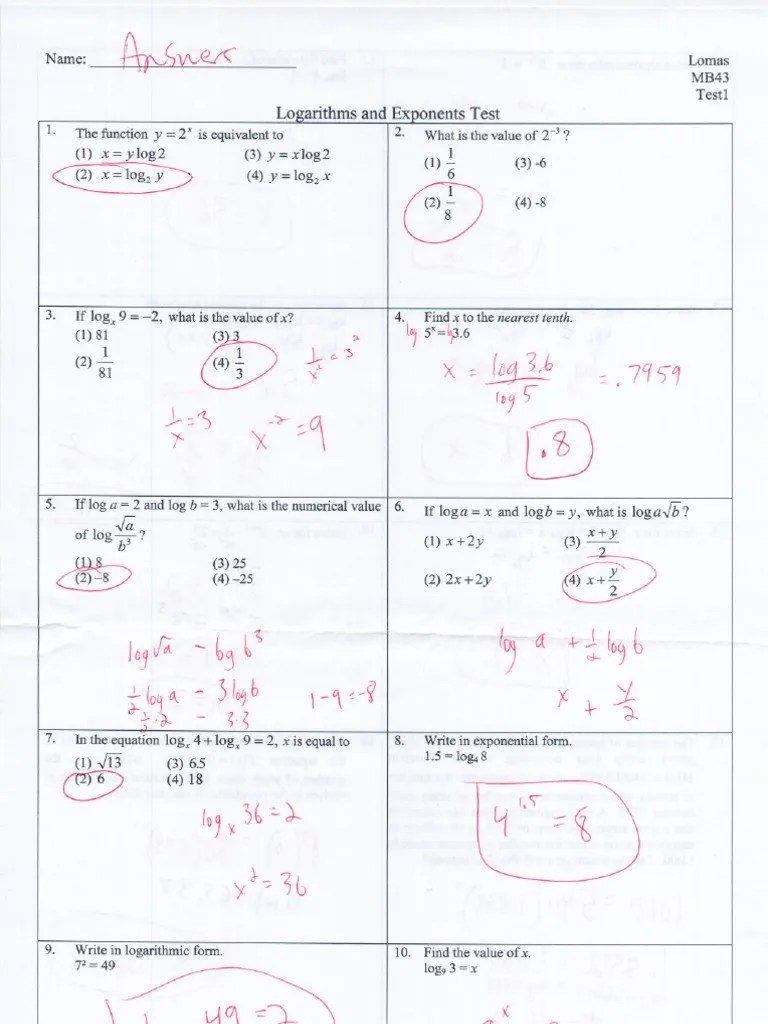 Name: Answer
Lomas
MB43
Test1
Logarithms and Exponents Test
1. The function y = 2ˣ is equivalent to
(1) x = y log 2 (3) y = x log 2
(2) x = log₂ y (4) y = log₂ x
2. What is the value of 2⁻³ ?
(1) 1/6 (3) -6
(2) 1/8 (4) -8
3. If logₓ 9 = –2, what is the value of x?
(1) 81 (3) 3
(2) 1/81 (4) 1/3
1/x² = 3²
1/x = 3 x⁻² = 9
4. Find x to the nearest tenth.
log 5ˣ = log 3.6
x = log 3.6 / log 5 = .7959
.8
5. If log a = 2 and log b = 3, what is the numerical value
of log √a/b³ ?
(1) 8 (3) 25
(2) –8 (4) –25
log √a - log b³
1/2 log a - 3 log b 1-9=-8
1/2·2 - 3·3
6. If log a = x and log b = y, what is log a√b ?
(1) x + 2y (3) x + y/2
(2) 2x + 2y (4) x + y/2
log a + 1/2 log b
x + y/2
7. In the equation logₓ 4 + logₓ 9 = 2, x is equal to
(1) √13 (3) 6.5
(2) 6 (4) 18
logₓ 36 = 2
x² = 36
8. Write in exponential form.
1.5 = log₄ 8
4¹·⁵ = 8
9. Write in logarithmic form.
7² = 49
49 = 2
10. Find the value of x.
log₉ 3 = x
x